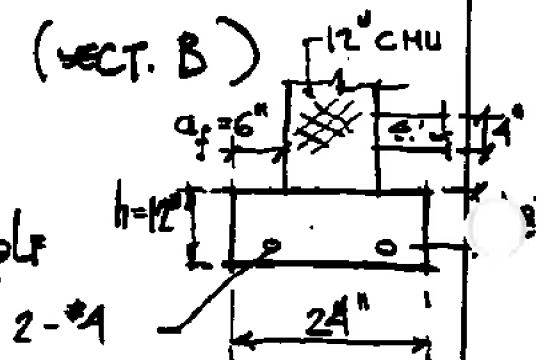 (SECT. B)
12" CMU
af=6"
4"
h=12"
2-#4
24"